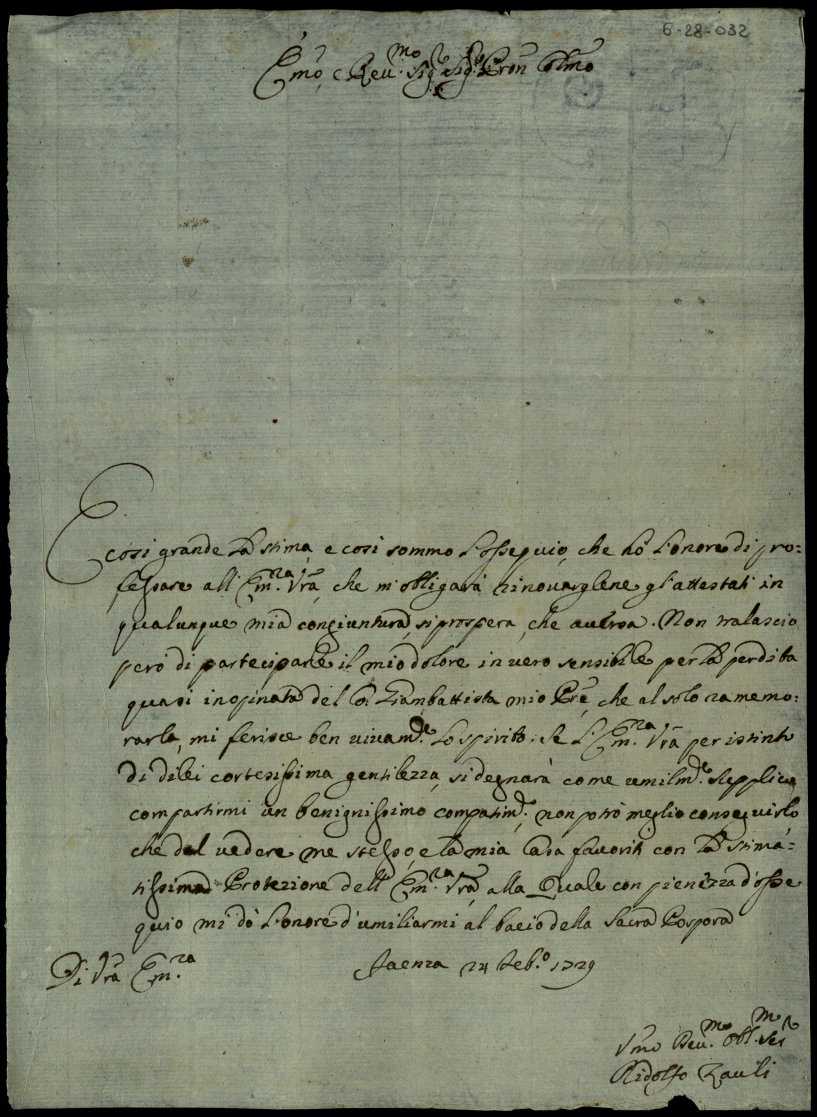 6-28-032
Emo, e Reu.mo Sig.r Sig.r Pron Colmo
E cosi grande la stima, e cosi sommo l'ossequio, che hò l'onore di pro:
fessare all'Em.za Vra, che m'obligarà rinouarglene gl'attestati in
qualunque mia congiuntura, si prospera, che auersa. Non tralascio
però di participarle il mio dolore in uero sensibile per la perdita
quasi inopinata del Co: Giambattista mio Pre, che al solo ramemo:
rarla, mi ferisce ben uiuam.te lo spirito. Se l'Em.za Vra per istinto
di di lei cortesissima gentilezza, si degnarà come umilm.te supplico
compartirmi un benignissimo compatim.to, non potrò meglio conseguirlo
che dal uedere me stesso, e la mia Casa fauoriti con la stima:
tissima Protezione dell'Em.za Vra, alla Quale con pienezza d'osse
quio mi dò l'onore d'umiliarmi al bacio della Sacra Porpora
Di Vra Em.za
Faenza 24 Feb.o 1729
Vmo Deu.mo Obl.mo Ser
Ridolfo Zauli